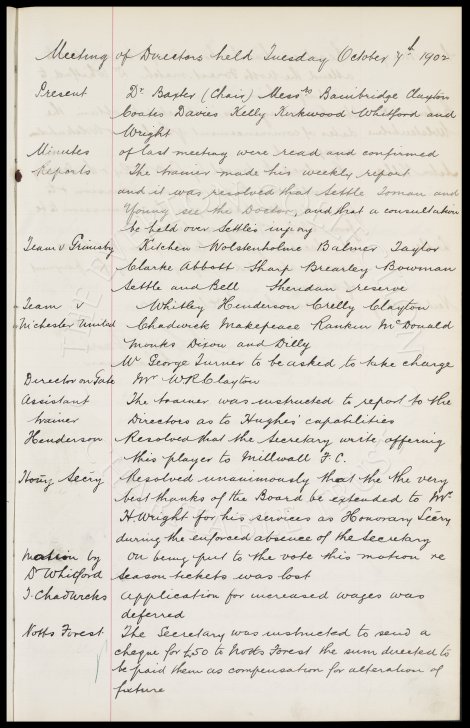 Meeting of Directors held Tuesday October 7th 1902
Present Dr Baxter (Chair) Messrs Bainbridge Clayton
Coates Davies Kelly Kirkwood Whitford and
Wright
Minutes of last meeting were read and confirmed
Reports The trainer made his weekly report
and it was resolved that Settle Toman and
Young see the Doctor, and that a consultation
be held over Settle's injury
Team v Grimsby Kitchen Wolstenholme Balmer Taylor
Clarke Abbott Sharp Brearley Bowman
Settle and Bell Sheridan reserve
Team v Whitley Henderson Crelly Clayton
M'chester United Chadwick Makepeace Rankin McDonald
Monks Dixon and Dilly
Mr George Turner to be asked to take charge
Director on Gate Mr W R Clayton
Assistant The trainer was instructed to report to the
trainer Directors as to Hughes' capabilities
Henderson Resolved that the Secretary write offering
this player to Millwall F.C.
Hony Secry Resolved unanimously that the the very
best thanks of the Board be extended to Mr
H Wright for his services as Honorary Secry
during the enforced absence of the Secretary
Motion by On being put to the vote this motion re
Dr Whitford Season tickets was lost
J. Chadwicks application for increased wages was
deferred
Notts Forest The Secretary was instructed to send a
cheque for £50 to Notts Forest the sum directed to
be paid them as compensation for alteration of
fixture